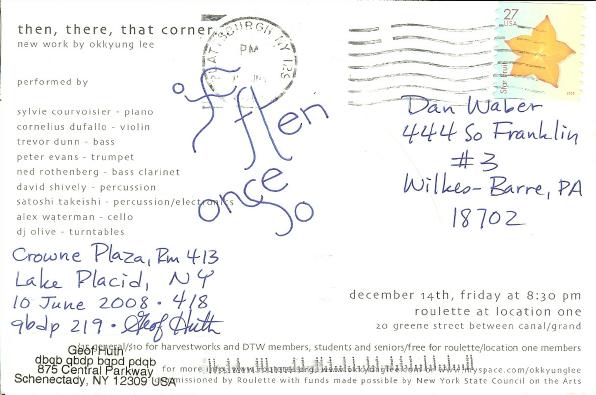 then, there, that corner
new work by okkyung lee
performed by
sylvie courvoisier - piano
cornelius dufallo - violin
trevor dunn - bass
peter evans - trumpet
ned rothenberg - bass clarinet
david shively - percussion
satoshi takeishi - percussion/electronics
alex waterman - cello
dj olive - turntables
PLATTSBURGH NY 129
PM
27
USA
Star fruit
often
once
so
Dan Waber
444 So Franklin
#3
Wilkes-Barre, PA
18702
Crowne Plaza, Rm 413
Lake Placid, NY
10 June 2008 · 4/8
qbdp 219 · Geof Huth
december 14th, friday at 8:30 pm
roulette at location one
20 greene street between canal/grand
general/$10 for harvestworks and DTW members, students and seniors/free for roulette/location one members
Geof Huth
dbqb qbdp bqpd pdqb
875 Central Parkway
Schenectady, NY 12309 USA
for more
www.myspace.com/okkyunglee
commissioned by Roulette with funds made possible by New York State Council on the Arts